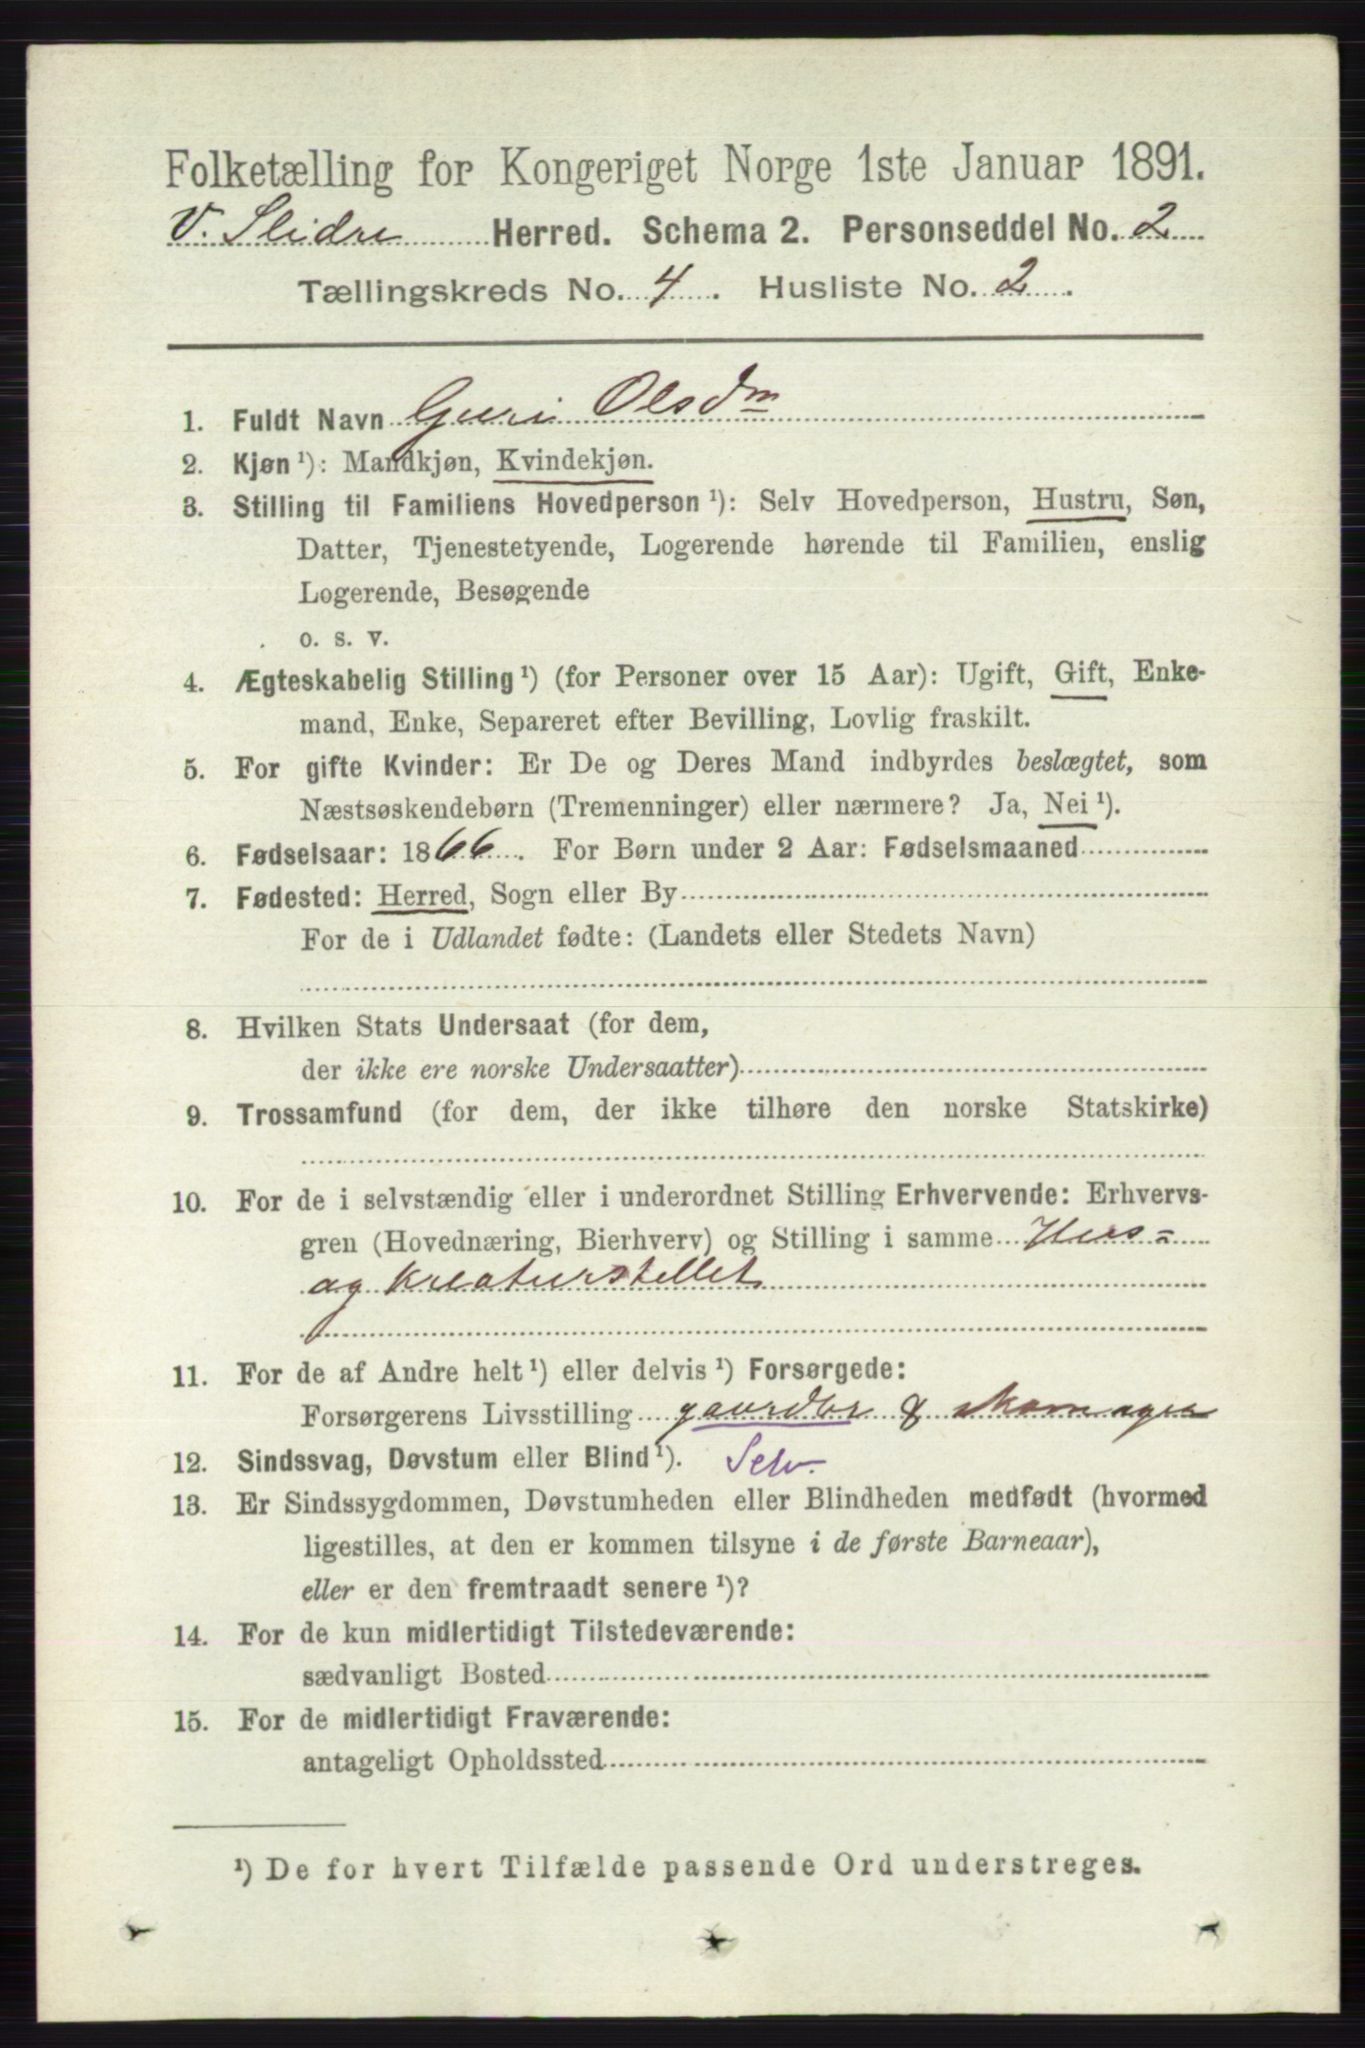 Folketælling for Kongeriget Norge 1ste Januar 1891.
V. Slidre Herred. Schema 2. Personseddel No. 2
Tællingskreds No. 4. Husliste No. 2.
1. Fuldt Navn Guri Olsdn
2. Kjøn ¹): Mandkjøn, Kvindekjøn.
3. Stilling til Familiens Hovedperson ¹): Selv Hovedperson, Hustru, Søn,
Datter, Tjenestetyende, Logerende hørende til Familien, enslig
Logerende, Besøgende
o. s. v.
4. Ægteskabelig Stilling ¹) (for Personer over 15 Aar): Ugift, Gift, Enke-
mand, Enke, Separeret efter Bevilling, Lovlig fraskilt.
5. For gifte Kvinder: Er De og Deres Mand indbyrdes beslægtet, som
Næstsøskendebørn (Tremenninger) eller nærmere? Ja, Nei ¹).
6. Fødselsaar: 1866. For Børn under 2 Aar: Fødselsmaaned
7. Fødested: Herred, Sogn eller By
For de i Udlandet fødte: (Landets eller Stedets Navn)
8. Hvilken Stats Undersaat (for dem,
der ikke ere norske Undersaatter)
9. Trossamfund (for dem, der ikke tilhøre den norske Statskirke)
10. For de i selvstændig eller i underordnet Stilling Erhvervende: Erhvervs-
gren (Hovednæring, Bierhverv) og Stilling i samme Hus=
og Kreaturstellet
11. For de af Andre helt ¹) eller delvis ¹) Forsørgede:
Forsørgerens Livsstilling gaardbr & skomager
12. Sindssvag, Døvstum eller Blind ¹). Selv.
13. Er Sindssygdommen, Døvstumheden eller Blindheden medfødt (hvormed
ligestilles, at den er kommen tilsyne i de første Barneaar),
eller er den fremtraadt senere ¹)?
14. For de kun midlertidigt Tilstedeværende:
sædvanligt Bosted
15. For de midlertidigt Fraværende:
antageligt Opholdssted
¹) De for hvert Tilfælde passende Ord understreges.